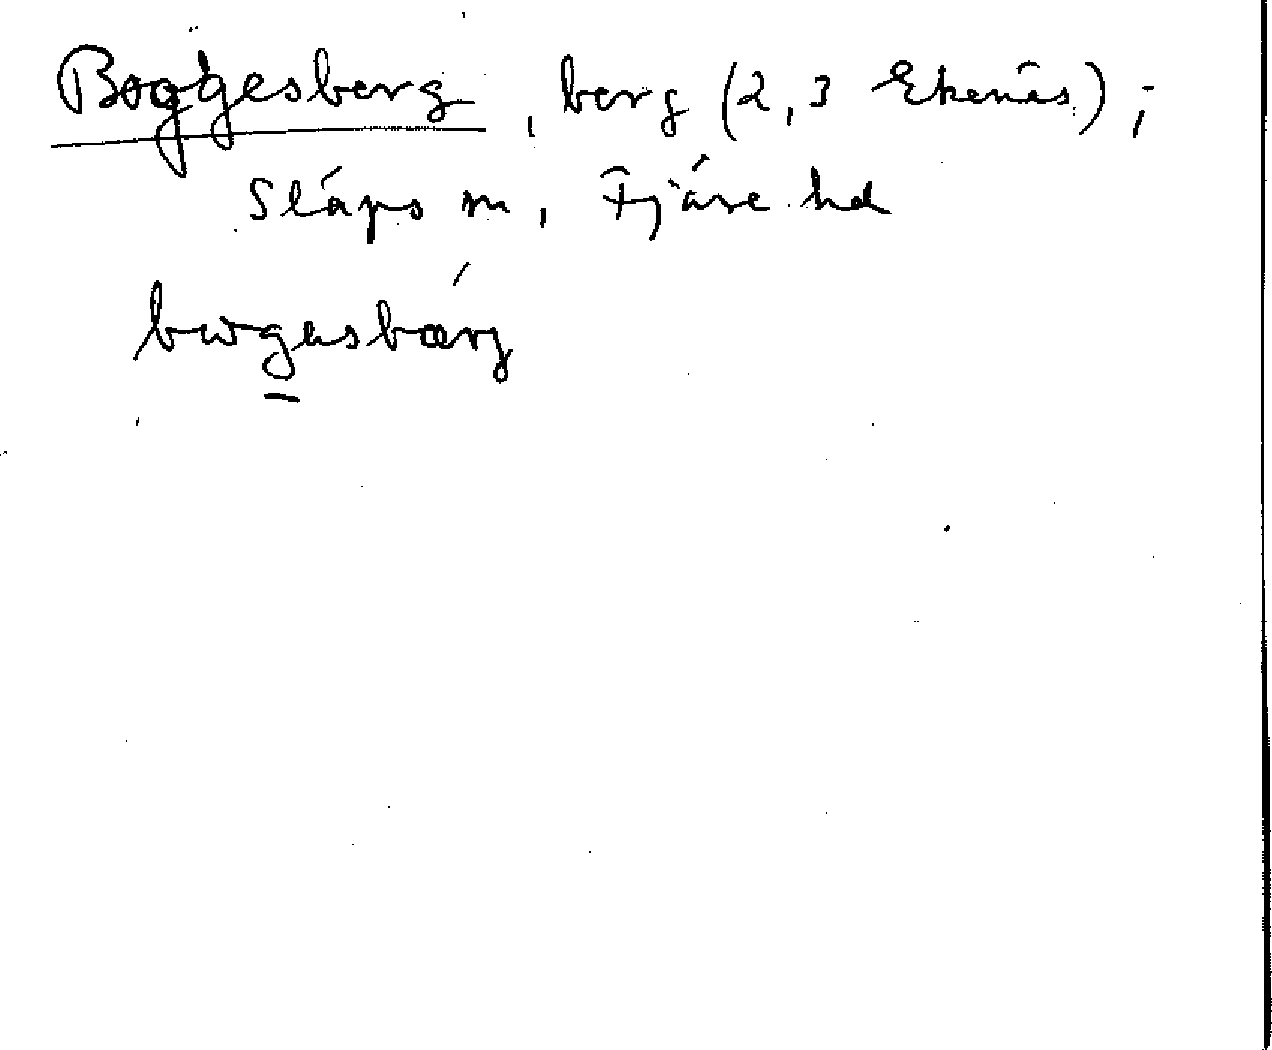 Boggesberg, berg (2,3 Ekenäs);
Släps sn, Fjäre hd
bωgəsbærj